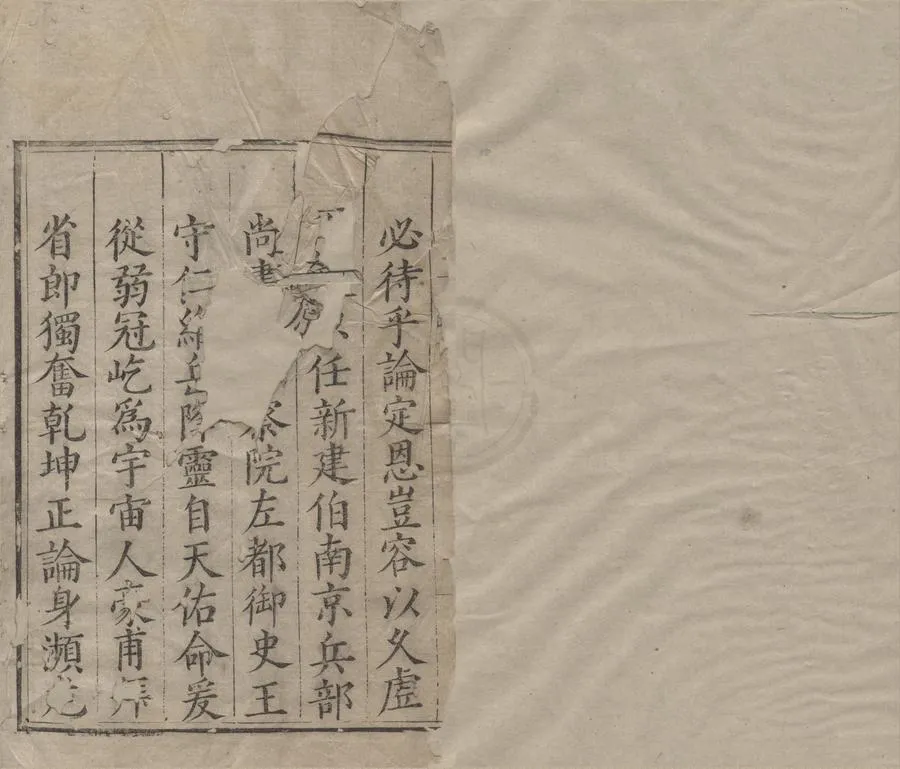 必待乎論定恩豈容以久虛
任新建伯南京兵部
尚書 察院左都御史王
守仁維岳降靈自天佑命爰
從弱冠屹為宇宙人豪甫拜
省郎獨奮乾坤正論身瀕危